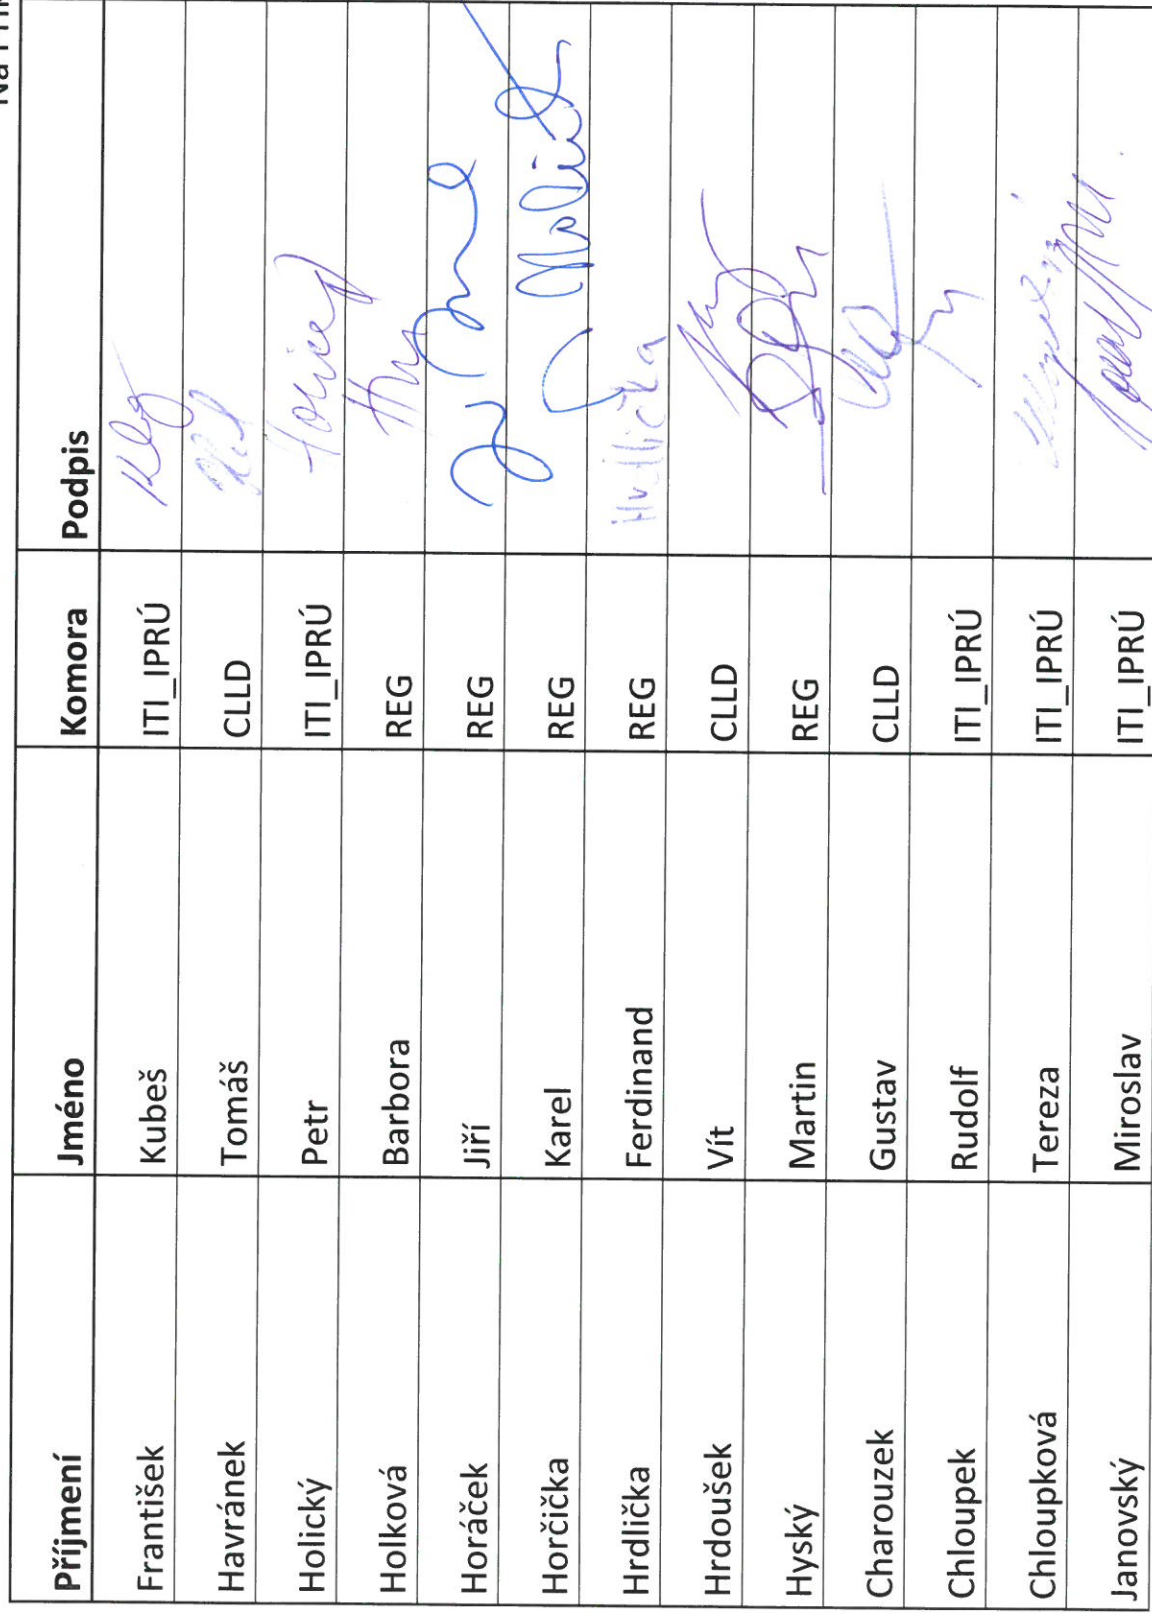 Příjmení Jméno Komora Podpis
František Kubeš ITI_IPRÚ
Havránek Tomáš CLLD
Holický Petr ITI_IPRÚ
Holková Barbora REG
Horáček Jiří REG
Horčička Karel REG
Hrdlička Ferdinand REG Hrdlička
Hrdoušek Vít CLLD
Hyský Martin REG
Charouzek Gustav CLLD
Chloupek Rudolf ITI_IPRÚ
Chloupková Tereza ITI_IPRÚ
Janovský Miroslav ITI_IPRÚ